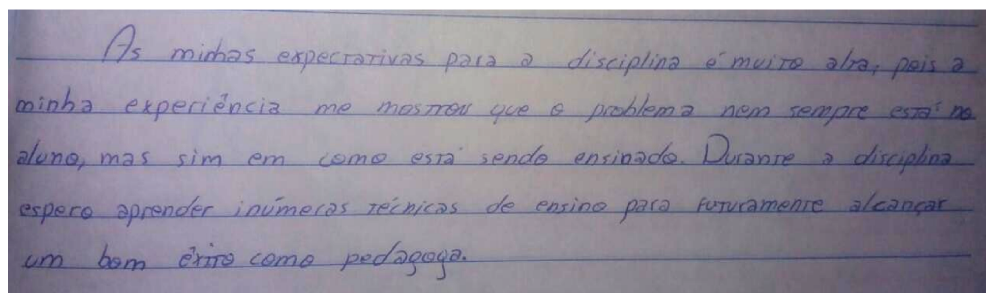 As minhas expectativas para a disciplina é muito alta, pois a
minha experiência me mostrou que o problema nem sempre está no
aluno, mas sim em como está sendo ensinado. Durante a disciplina
espero aprender inúmeras técnicas de ensino para futuramente alcançar
um bom êxito como pedagoga.